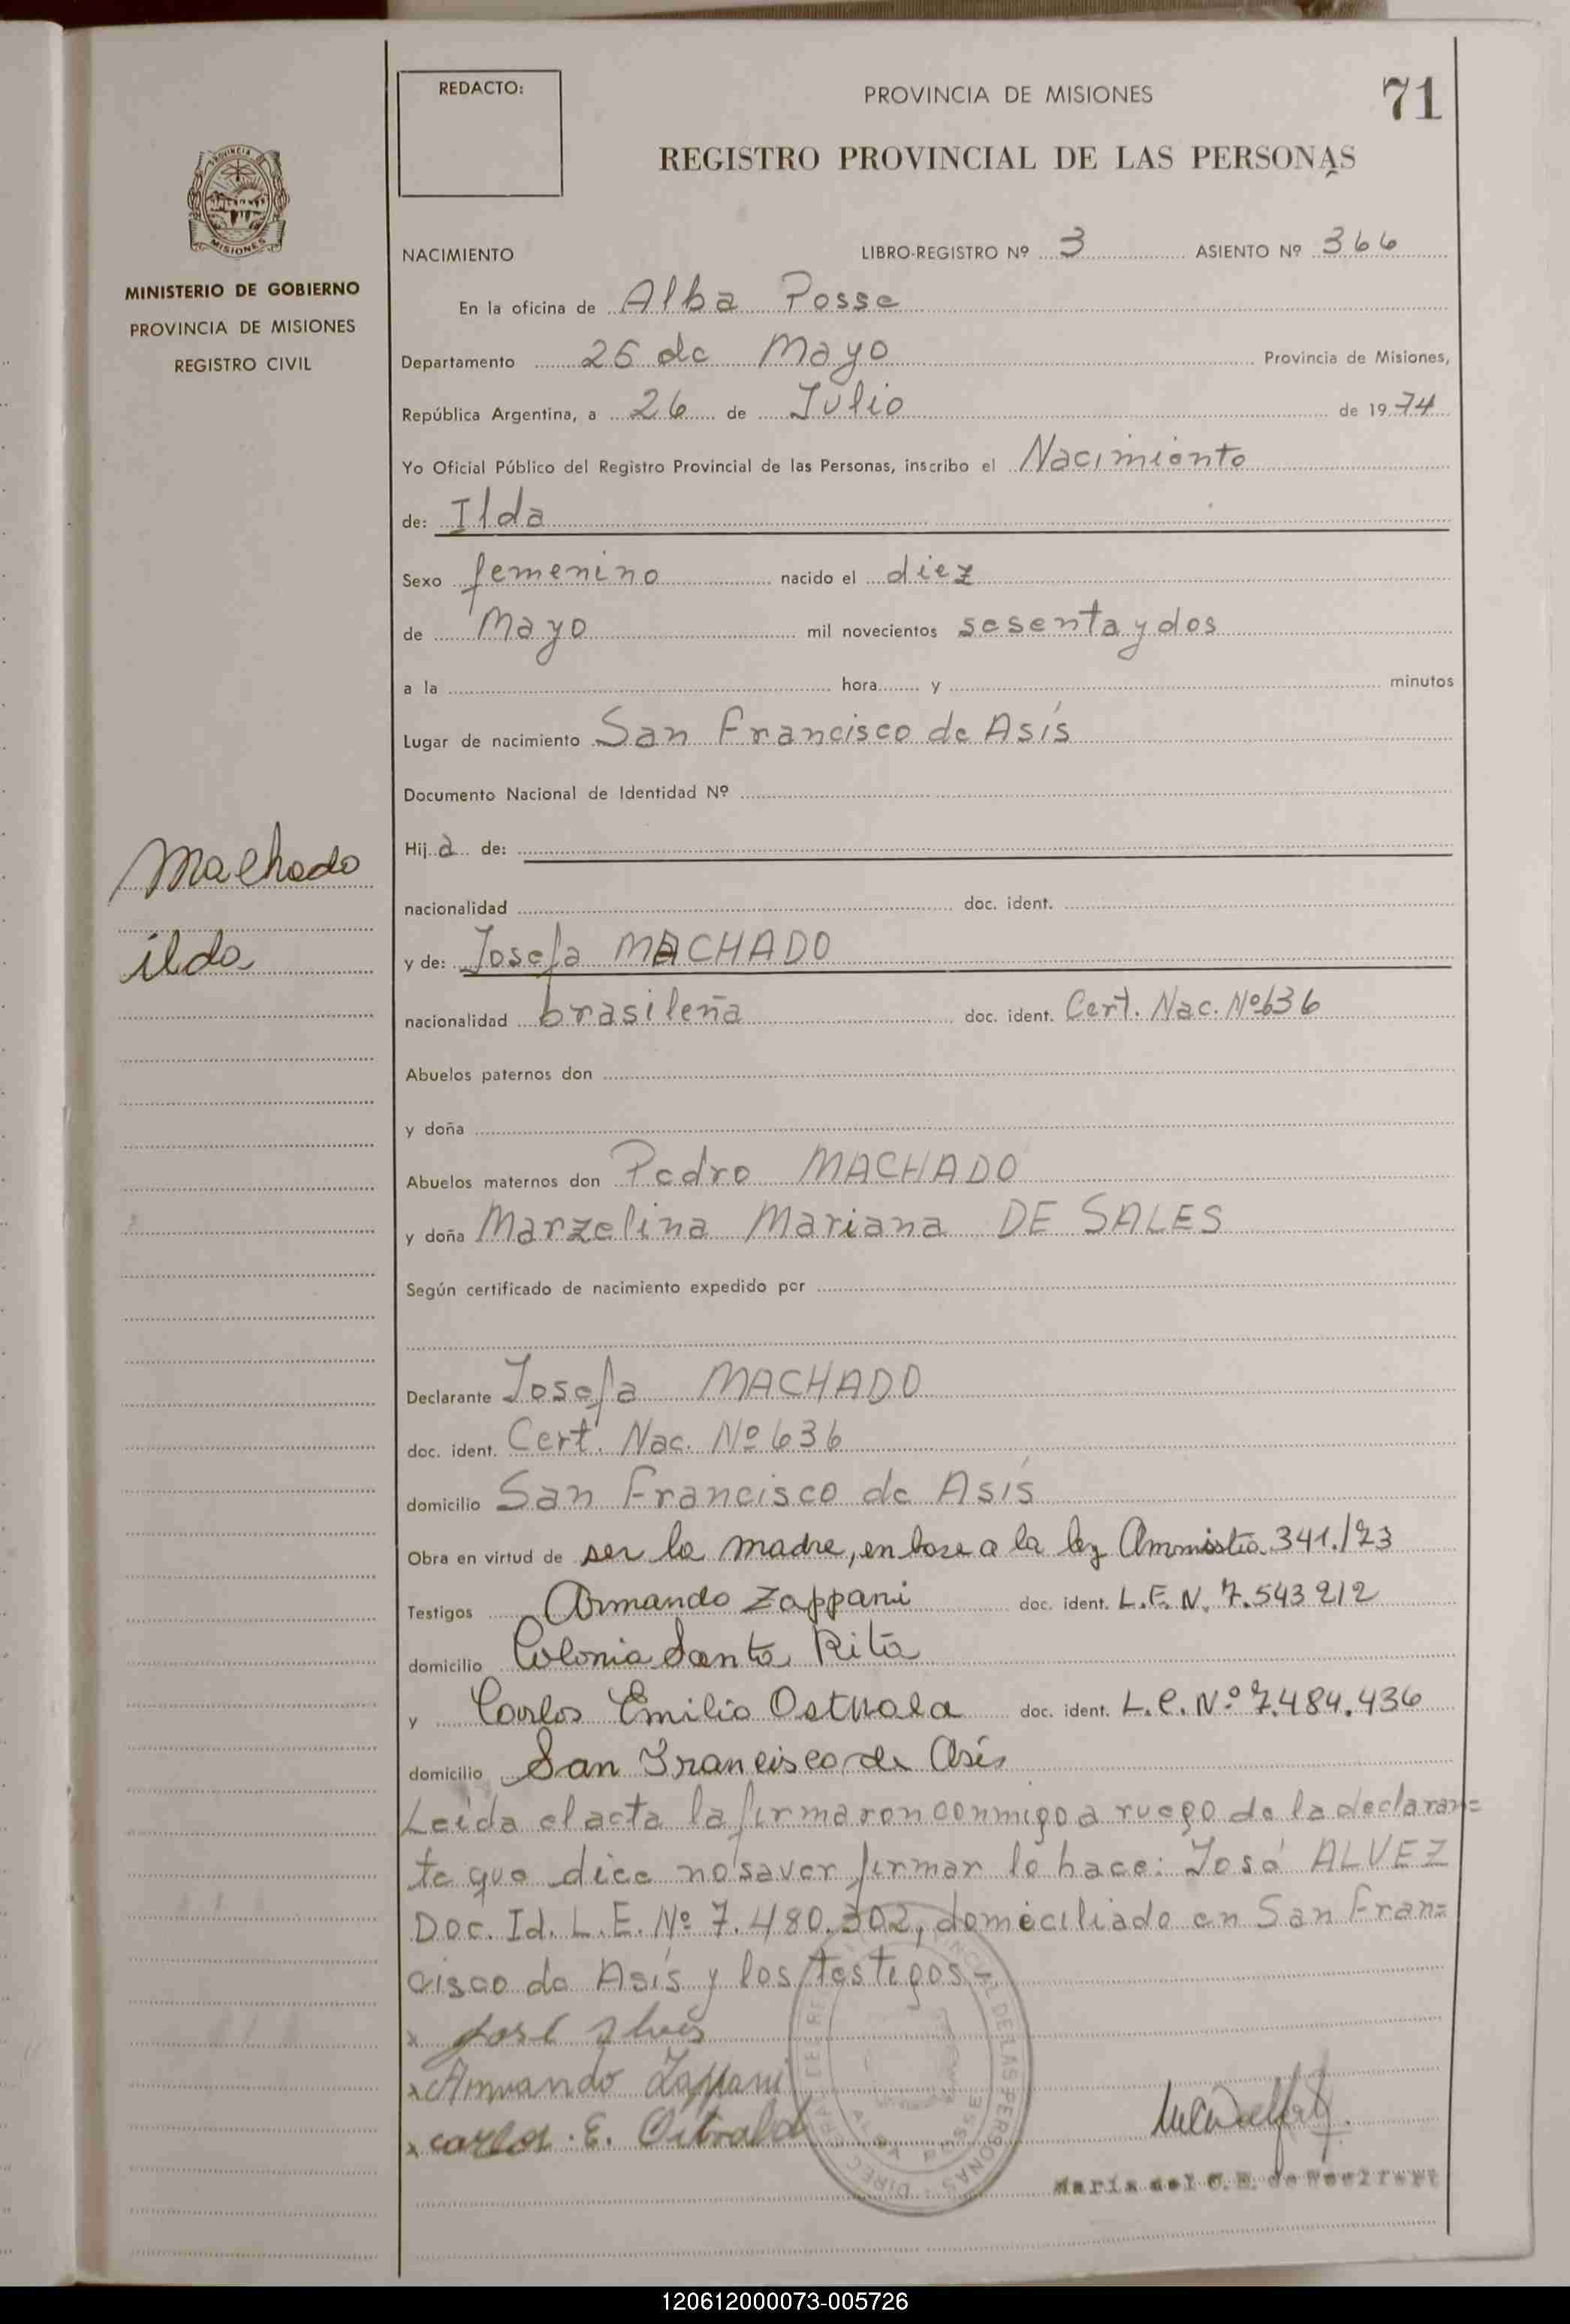 REDACTO:
PROVINCIA DE MISIONES
71
REGISTRO PROVINCIAL DE LAS PERSONAS
PROVINCIA DE
MISIONES
MINISTERIO DE GOBIERNO
PROVINCIA DE MISIONES
REGISTRO CIVIL
NACIMIENTO LIBRO-REGISTRO Nº 3 ASIENTO Nº 366
En la oficina de Alba Posse
Departamento 25 de Mayo Provincia de Misiones,
República Argentina, a 26 de Julio de 1974
Yo Oficial Público del Registro Provincial de las Personas, inscribo el Nacimiento
de: Ilda
Sexo femenino nacido el diez
de Mayo mil novecientos sesenta y dos
a la hora y minutos
Lugar de nacimiento San Francisco de Asís
Documento Nacional de Identidad Nº
Machado
ilda
Hija de:
nacionalidad doc. ident.
y de: Josefa MACHADO
nacionalidad brasileña doc. ident. Cert. Nac. Nº 636
Abuelos paternos don
y doña
Abuelos maternos don Pedro MACHADO
y doña Marzelina Mariana DE SALES
Según certificado de nacimiento expedido por
Declarante Josefa MACHADO
doc. ident. Cert. Nac. Nº 636
domicilio San Francisco de Asís
Obra en virtud de ser la madre, en base a la ley 341./73
Testigos Armando Zappani doc. ident. L.E. N. 7.543 212
domicilio Colonia Santa Rita
y Carlos Emilio doc. ident. L.E. Nº 7.484.436
domicilio San Francisco de Asís
Leída el acta la firmaron conmigo a ruego de la declaran=
te que dice no saver firmar lo hace: José ALVEZ
Doc. Id. L.E. Nº 7.480.302, domiciliado en San Fran=
cisco de Asís y los testigos-
x José Alves
x Armando Zappani
x Carlos. E.
DIREC DE LAS PERSONAS
ALBA POSSE
María del C. E. de
120612000073-005726